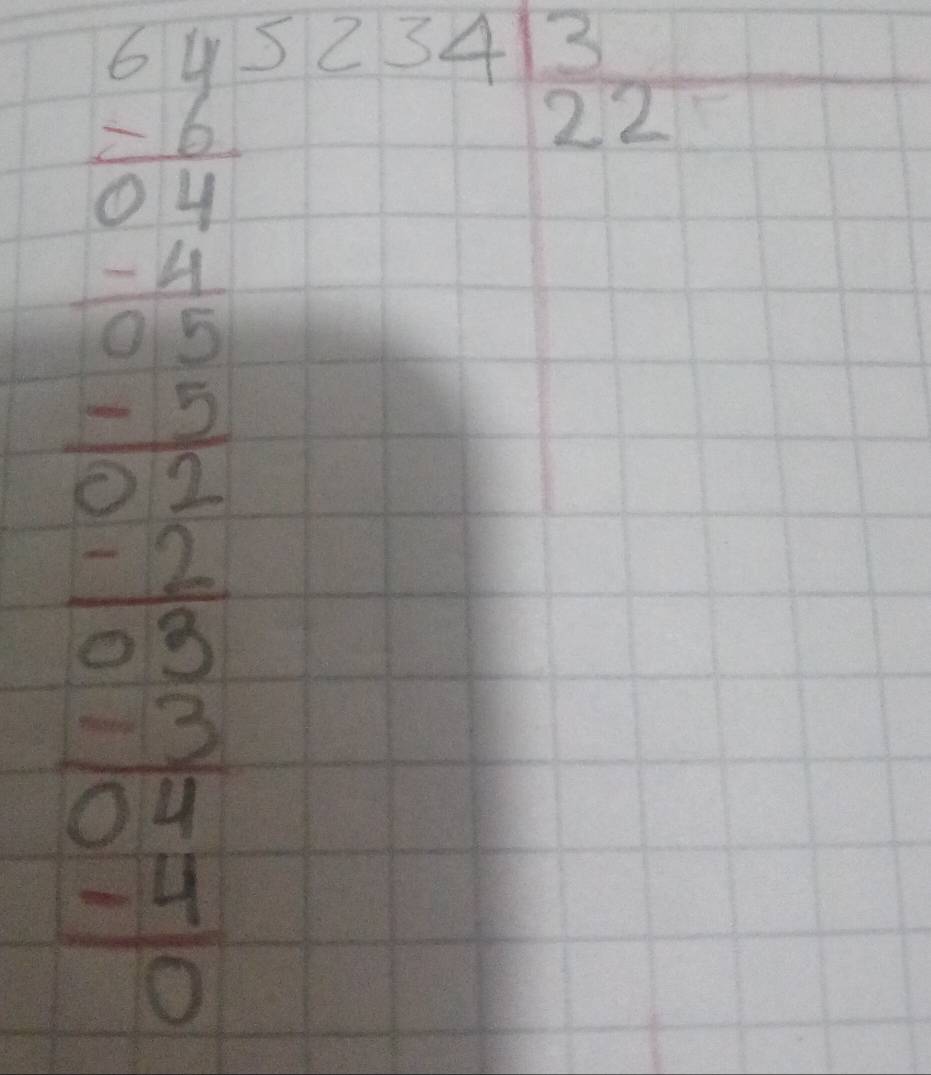 645234 3
- 6 22
04
- 4
05
- 5
02
- 2
03
- 3
04
- 4
0